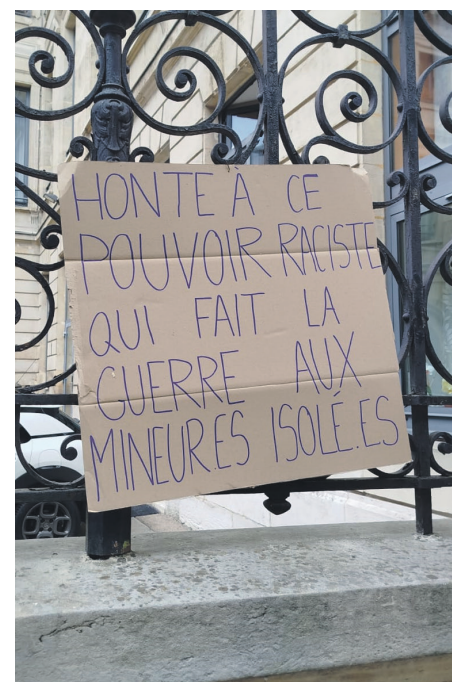 HONTE À CE
POUVOIR RACISTE
QUI FAIT LA
GUERRE AUX
MINEUR.ES ISOLÉ.ES